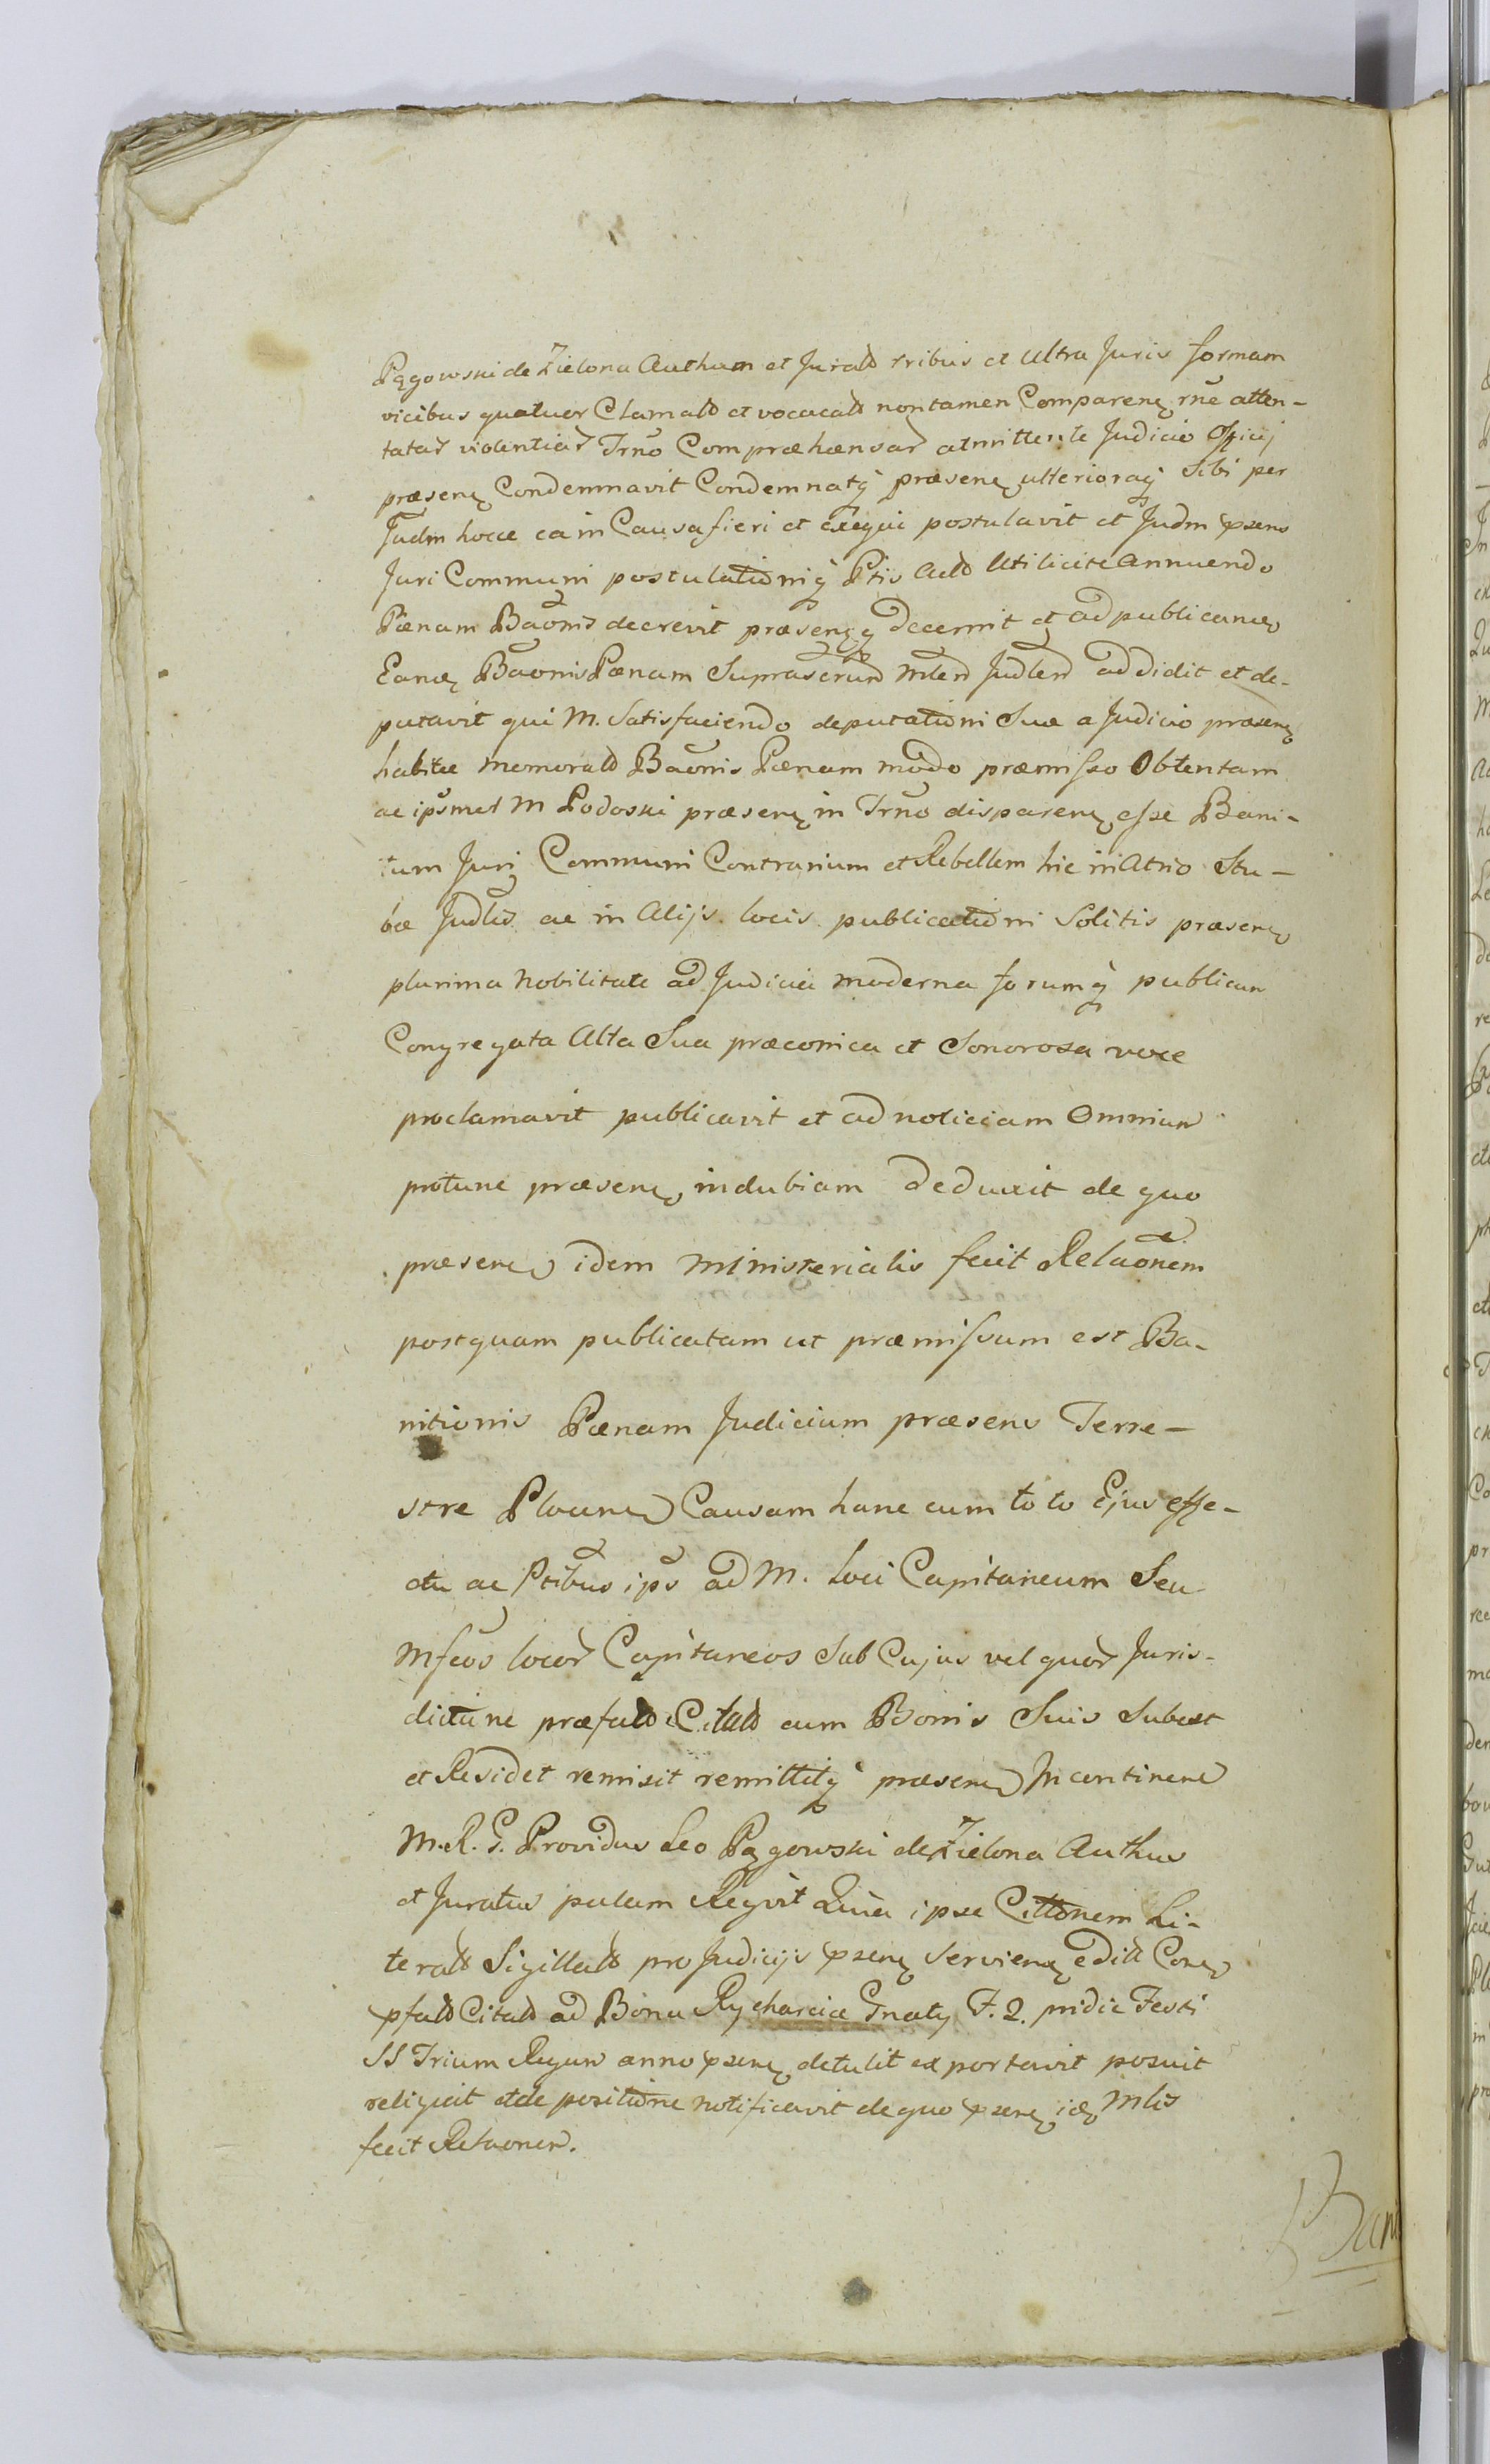 Pągowski de Zielona Authum et Jurald tribus et ultra Juris formam
vicibus quatuor Clamald et vocacald non tamen Comparenȩ rñe atten-
tatar violentiar Trno Compræhænsar admittente Judicio Officij
præsenȩ Condemnavit Condemnatq præsenȩ ulterioraq Sibi per
Judm hocce ea in Causa fieri et exequi postulavit et Judm psens
Juri Communi postulationiq Ptis Actd Utilicite Annuendo
Pænam Baonis decrevit præsenȩq decernit et ad publicanȩ
Eanȩ Baonis Pænam Suprascrun Mlen Judlen addidit et de-
putavit qui M. Satisfaciendo deputationi Suæ a Judicio præsenȩ
habitæ memorald Baonis Pænam modo præmisso Obtentam
ac ipsmet M Podoski præsenȩ in Trno disparenȩ esse Bani-
tum Juri Communi Contrarium et Rebellem hic in Atrio Stu-
bæ Judlis ac in Alijs locis publicationi Solitis præsenȩ
plurima Nobilitate ad Judicia moderna forumq publicun
Congregata Alta Sua præconica et Sonorosa voce
proclamavit publicavit et ad noticiam Omniun
protunc præsenȩ indubiam deduxit de quo
præsenȩ idem Ministerialis fecit Relaonem
postquam publicatam ut præmissum est Ba-
nitionis Pænam Judicium præsens Terre-
stre Plocenȩ Causam hanc cum toto Ejus effe-
ctu ac Ptibus ips ad M. Loci Capitaneum Seu
Mfcos locor Capitaneos Sub Cujus vel quor Juris-
dictione præfald Citald cum Bonis Suis Subest
et Residet remisit remittitq præsenȩ Incontinenȩ
M. R. G. Providus Leo Pągowski de Zielona Authus
et Juratus palam Regvit Quia ipse Cittonem Li-
terald Sigillald pro Judicijs psenȩ Servienȩ edill Conȩ
pfald Citald ad Bona Rycharcice Gnaty F. 2. pridie Festi
SS Trium Regun anno psenȩ detulit exportavit posuit
reliquit et de positione notificavit de quo psenȩ idȩ Mlis
fecit Relaonen.
Bani